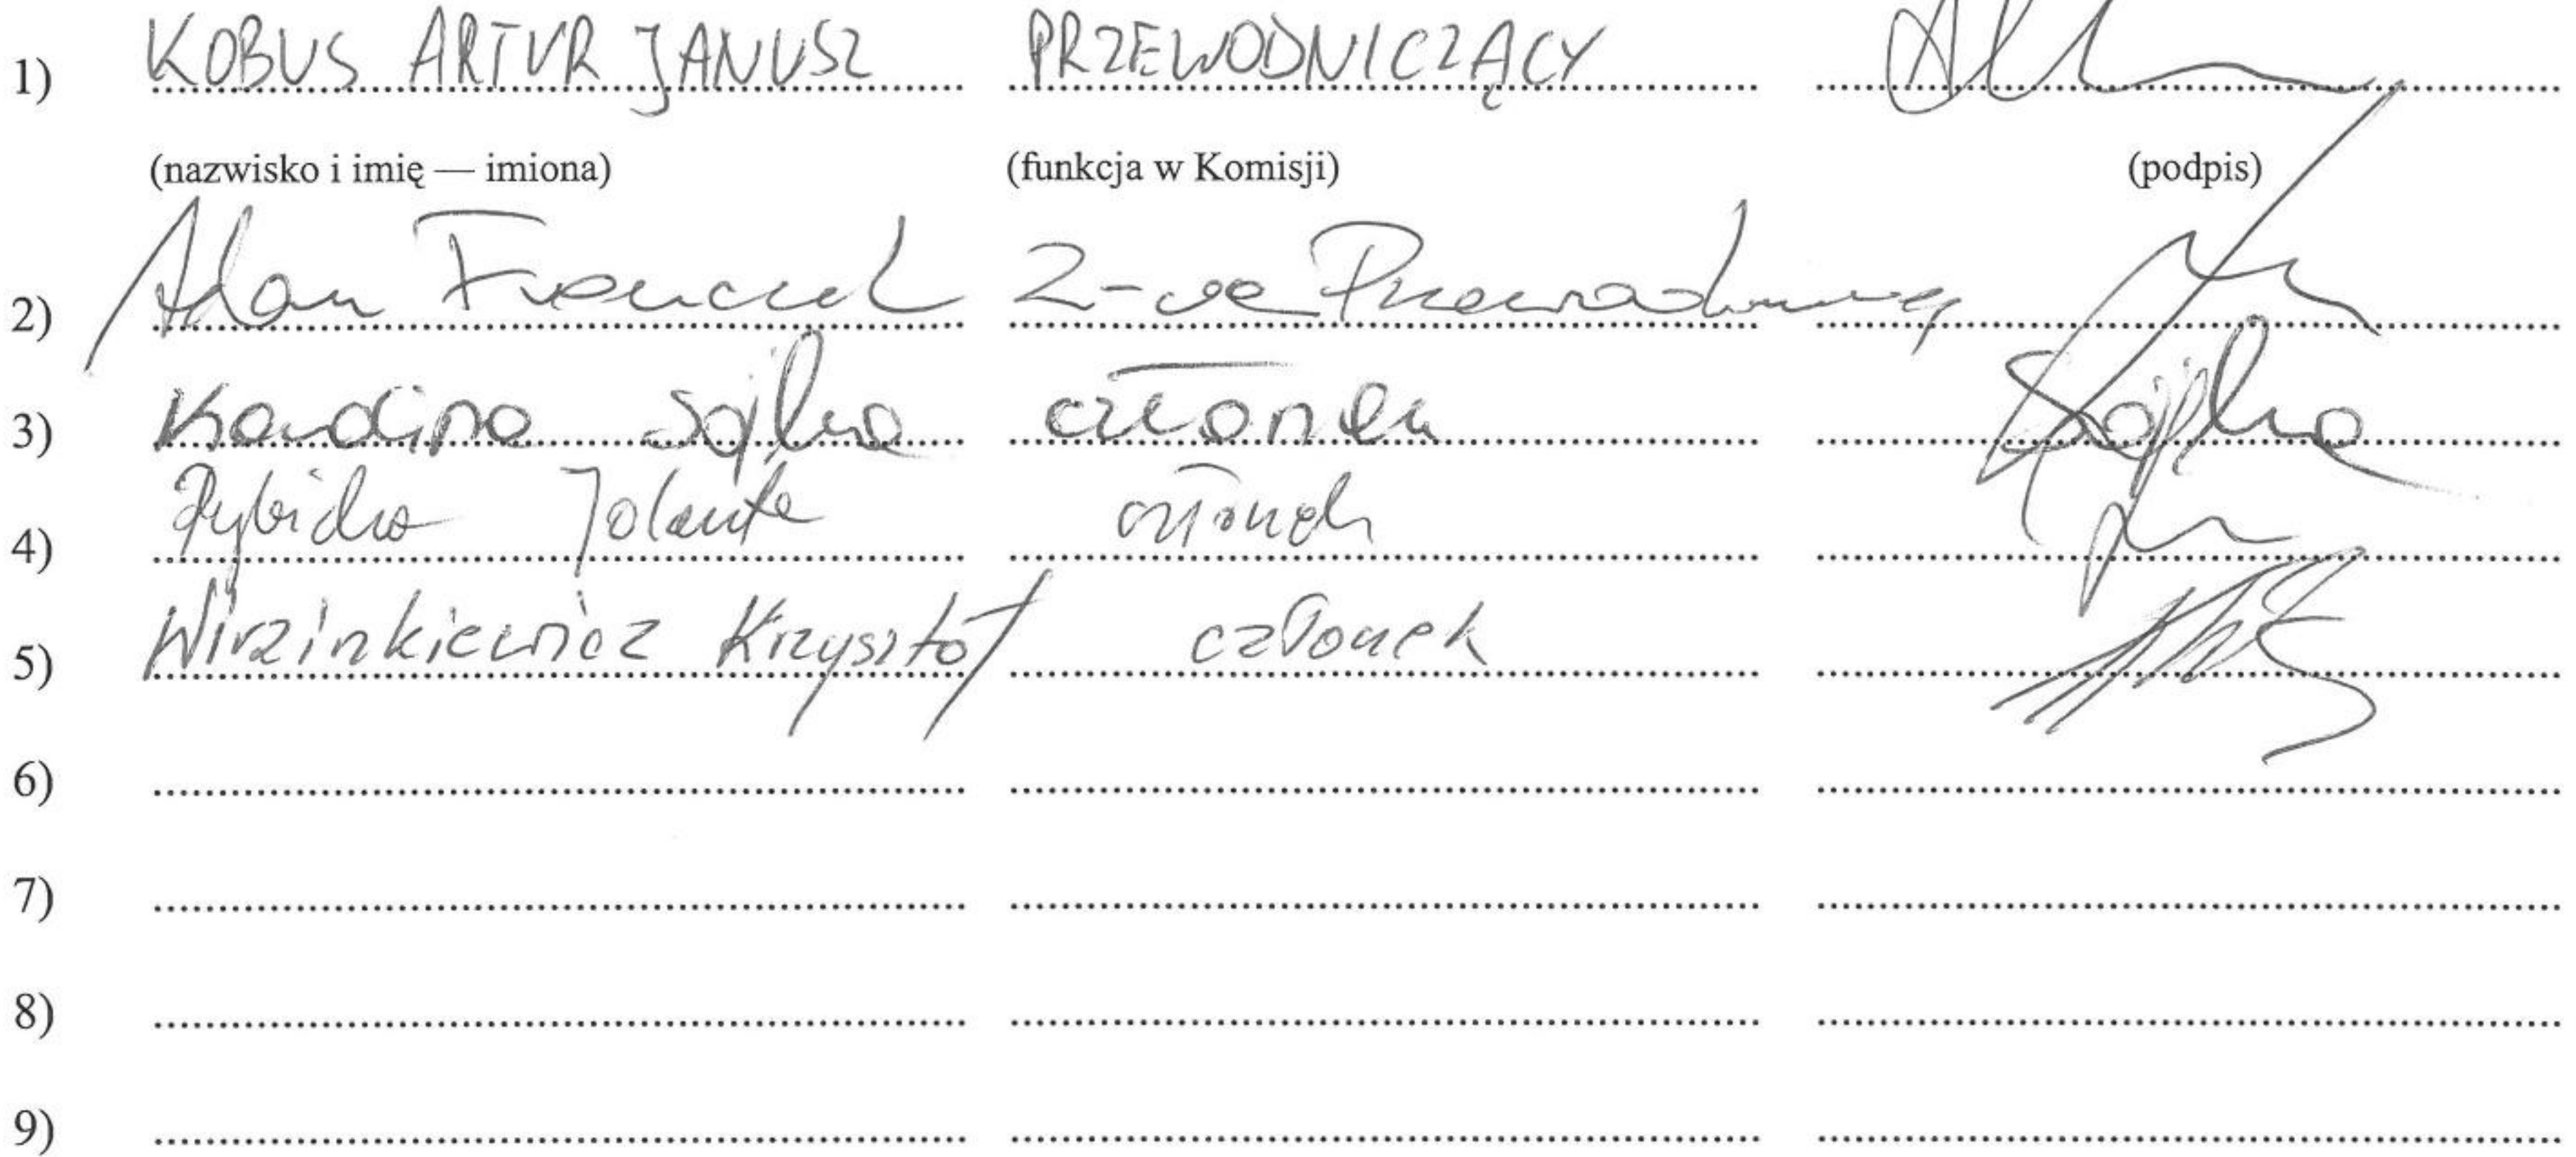 1) KOBUS ARTUR JANUSZ PRZEWODNICZĄCY
(nazwisko i imię — imiona) (funkcja w Komisji) (podpis)
2) Adam 2-ca
3) Sójka członek
4) Rybicka Jolanta członek
5) Wirzinkiewicz Krzysztof członek
6)
7)
8)
9)